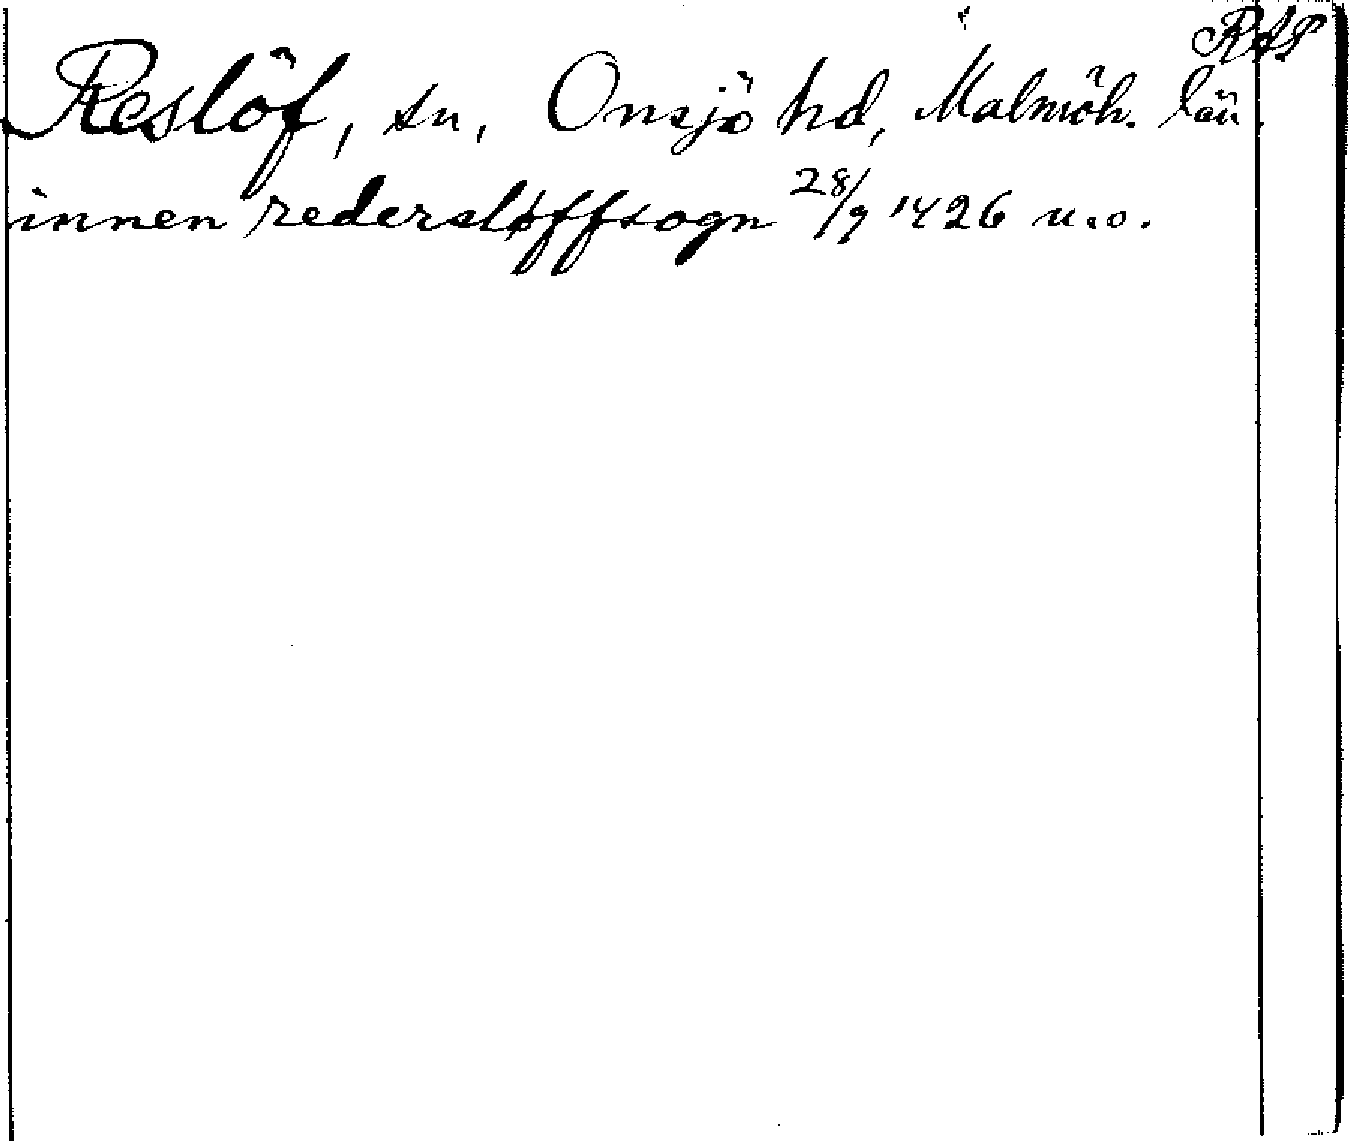 RAP
Reslöf, sn, Onsjö hd, Malmöh. län.
innen redersløffsogn 28/9 1426 u.o.